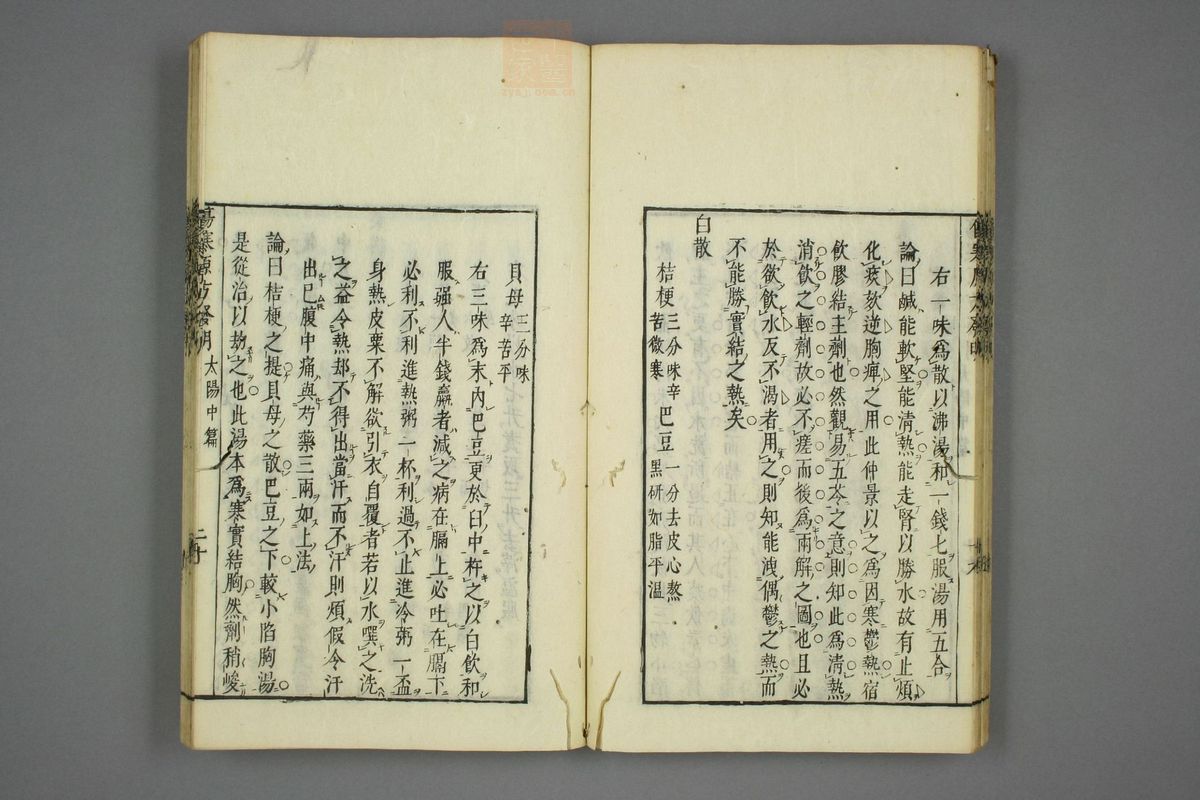 右一味爲散以沸湯和一錢七服湯用五合
論曰鹹能軟堅能清熱能走腎以勝水故有止煩
化痰欬逆胸痺之用此仲景以之爲因寒鬱熱宿
飲膠結主劑也然觀易五苓之意則知此爲清熱
消飲之輕劑故必不瘥而後爲兩解之圖也且必
於欲飲水反不渴者用之則知能洩偶鬱之熱而
不能勝實結之熱矣
白散
桔梗三分味辛苦微寒 巴豆一分去皮心熬黑研如脂平溫
貝母三分味辛苦平
右三味爲末內巴豆更於臼中杵之以白飲和
服强人半錢羸者減之病在膈上必吐在膈下
必利不利進熱粥一杯利過不止進冷粥一盃
身熱皮粟不解欲引衣自覆者若以水噀之洗
之益令熱却不得出當汗而不汗則煩假令汗
出已腹中痛與芍藥三兩如上法
論曰桔梗之提貝母之散巴豆之下較小陷胸湯
是從治以劫之也此湯本爲寒實結胸然劑稍峻
傷寒源方發明 太陽中篇 二十
zysj.com.cn